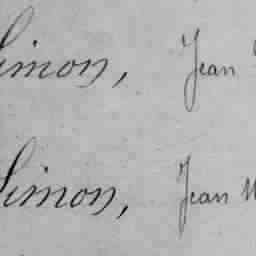 Simon, Jean
Simon, Jean